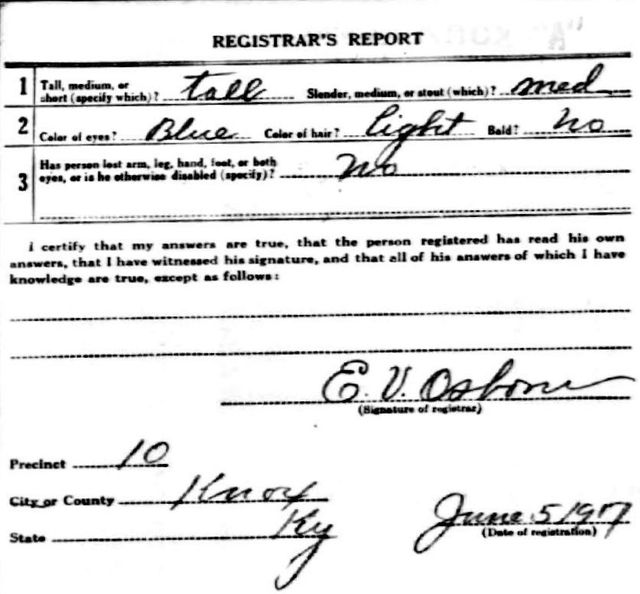 REGISTRAR'S REPORT
1 Tall, medium, or short (specify which)? tall Slender, medium, or stout (which)? med
2 Color of eyes? Blue Color of hair? light Bald? No
3 Has person lost arm, leg, hand, foot, or both eyes, or is he otherwise disabled (specify)? No
I certify that my answers are true, that the person registered has read his own
answers, that I have witnessed his signature, and that all of his answers of which I have
knowledge are true, except as follows:
E. V. Osborne
(Signature of registrar)
Precinct 10
City or County Knox
State Ky
June 5 1917
(Date of registration)